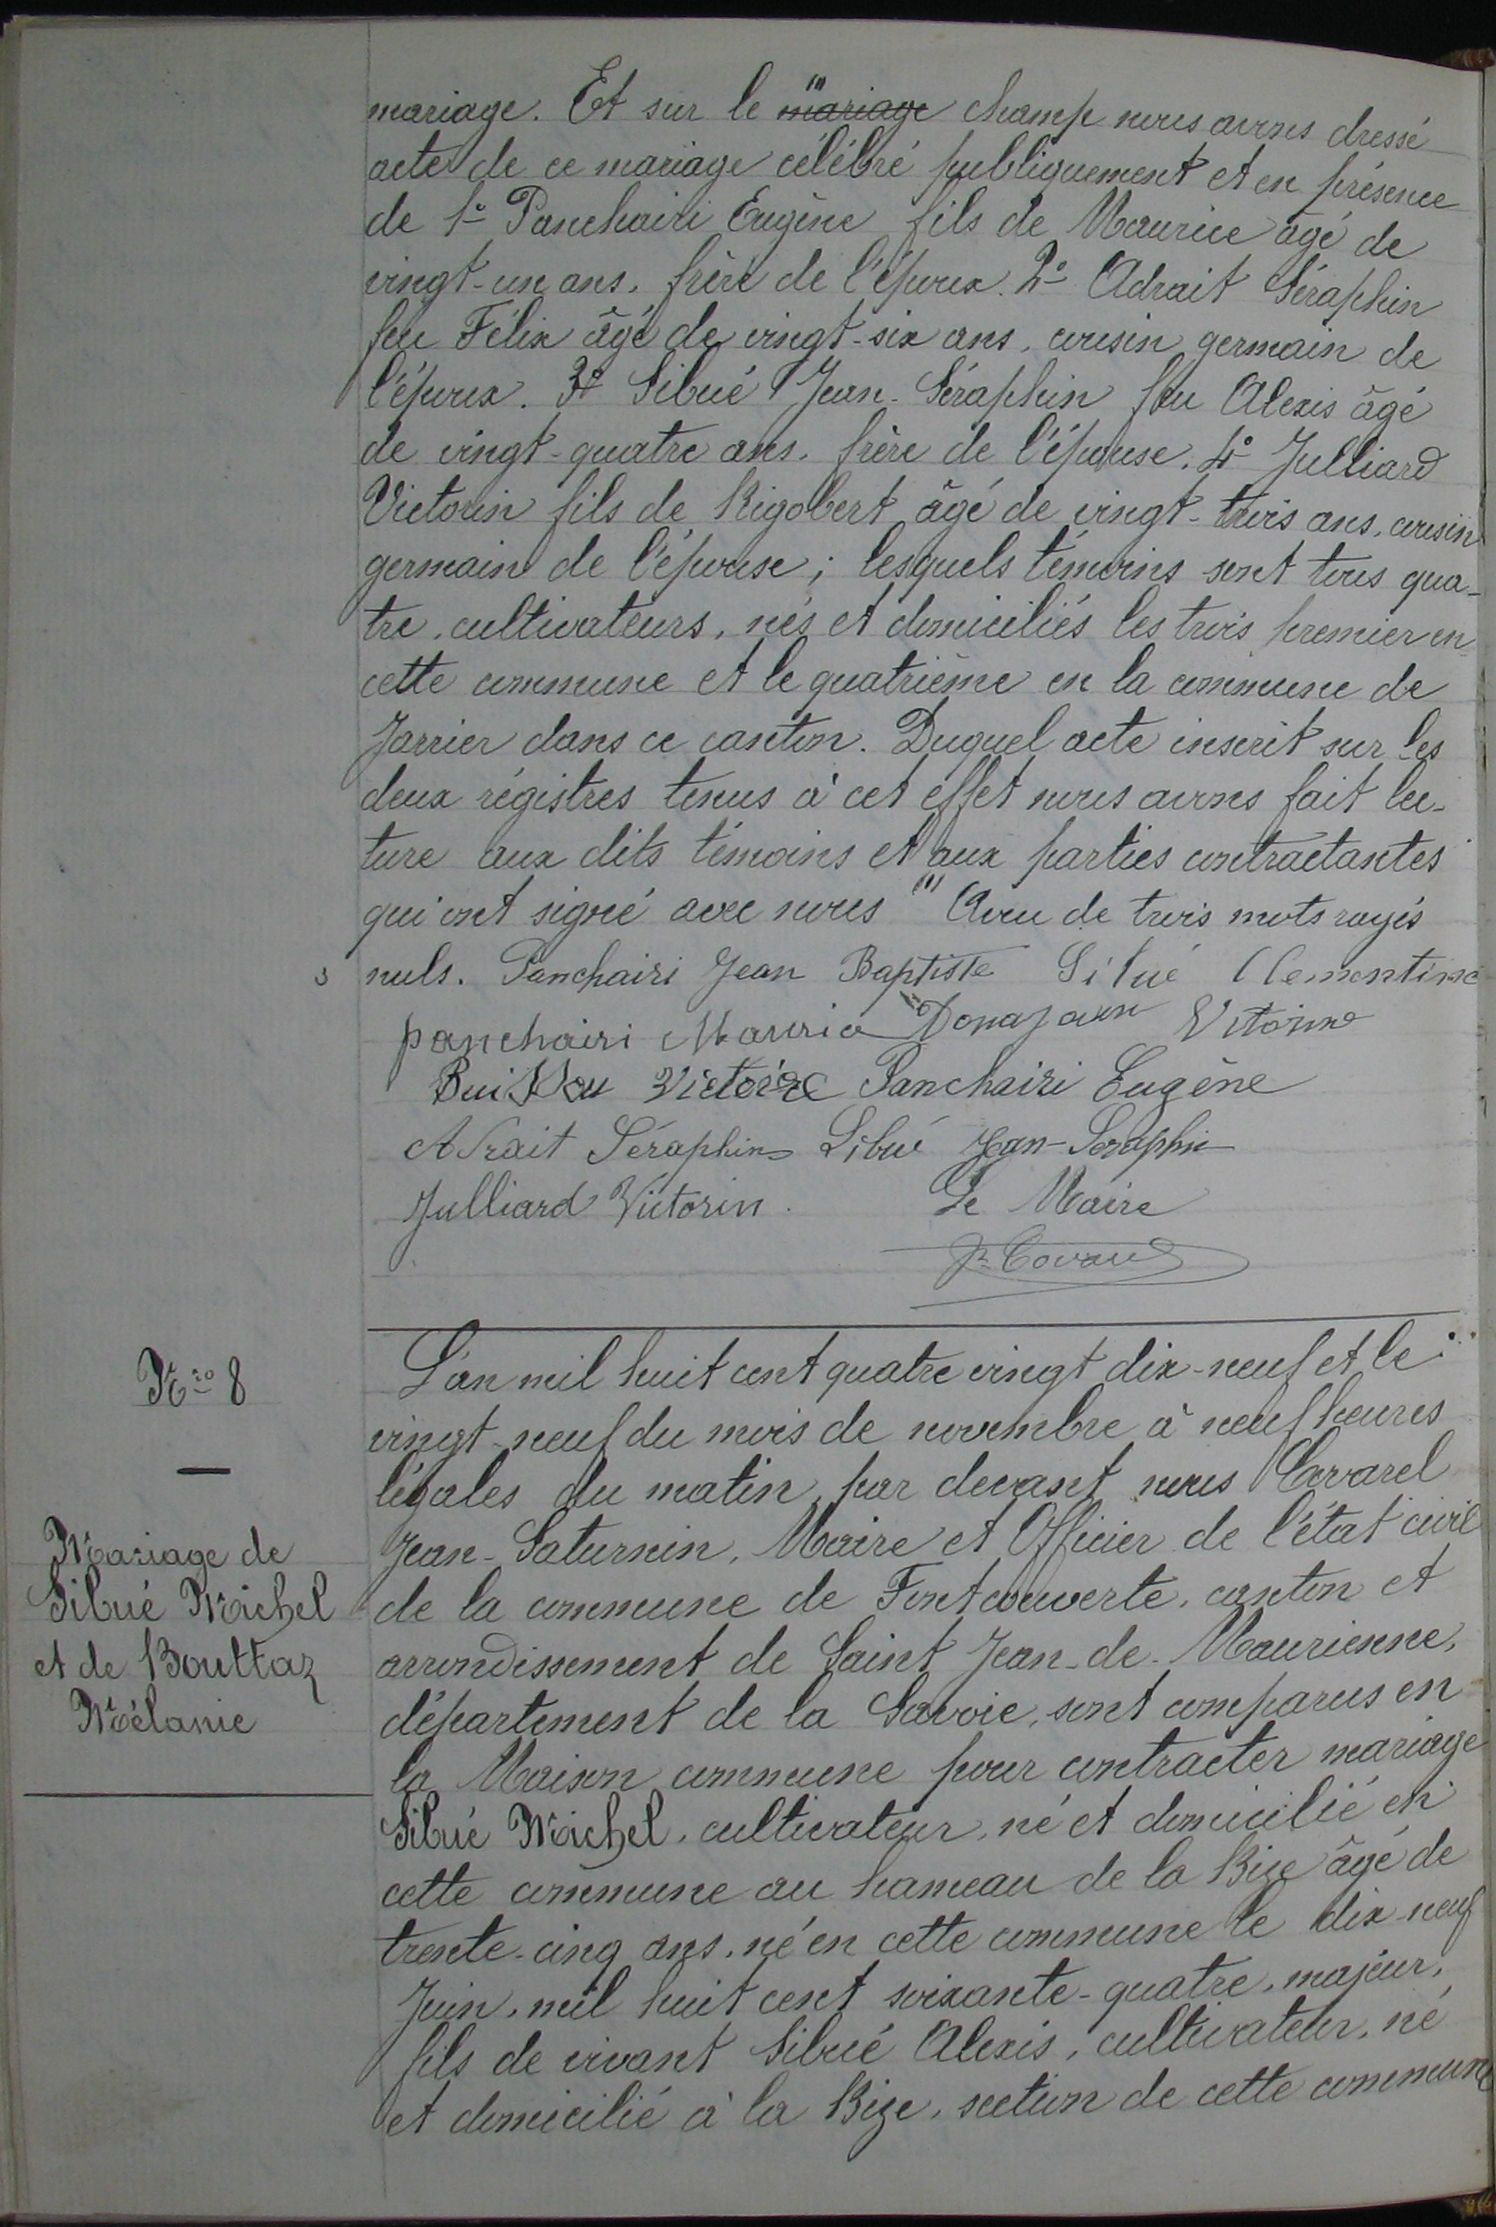 mariage. Et sur le mariage champ nous avons dressé
acte de ce mariage célébré publiquement et en présence
de 1° Panchairi Eugène fils de Maurice âgé de
vingt-un ans, frère de l'époux. 2° Adrait Séraphin
feu Félix âgé de vingt-six ans, cousin germain de
l'époux. 3° Sibué Jean-Séraphin feu Alexis âgé
de vingt-quatre ans, frère de l'épouse. 4° Julliard
Victorin fils de Rigobert âgé de vingt-trois ans, cousin
germain de l'épouse; lesquels témoins sont tous qua-
tre, cultivateurs, nés et domiciliés les trois premier en
cette commune et le quatrième en la commune de
Jarrier dans ce canton. Duquel acte inscrit sur les
deux régistres tenus à cet effet nous avons fait lec-
ture aux dits témoins et aux parties contractantes
qui ont signé avec nous (1) Aveu de trois mots rayés
3 nuls. Panchairi Jean Baptiste Sibué Clementine
panchairi Mauric Victorine
Victoire Panchairi Eugène
Adrait Séraphin Sibué Jean-Seraphin
Julliard Victorin. Le Maire
N:ro 8
Mariage de
Sibué Michel
et de Bouttaz
Mélanie
L'an mil huit cent quatre vingt dix-neuf et le
vingt-neuf du mois de novembre à neuf heures
légales du matin, par devant nous Covarel
Jean-Saturnin, Maire et Officier de l'état civil
de la commune de Fontcouverte, canton et
arrondissement de Saint Jean-de-Maurienne,
département de la Savoie, sont comparus en
la Maison commune pour contracter mariage
Sibué Michel, cultivateur, né et domicilié en
cette commune au hameau de la Bize âgé de
trente-cinq ans, né en cette commune le dix-neuf
Juin, mil huit cent soixante-quatre, majeur,
fils de vivant Sibué Alexis, cultivateur, né
et domicilié à la Bize, section de cette commune